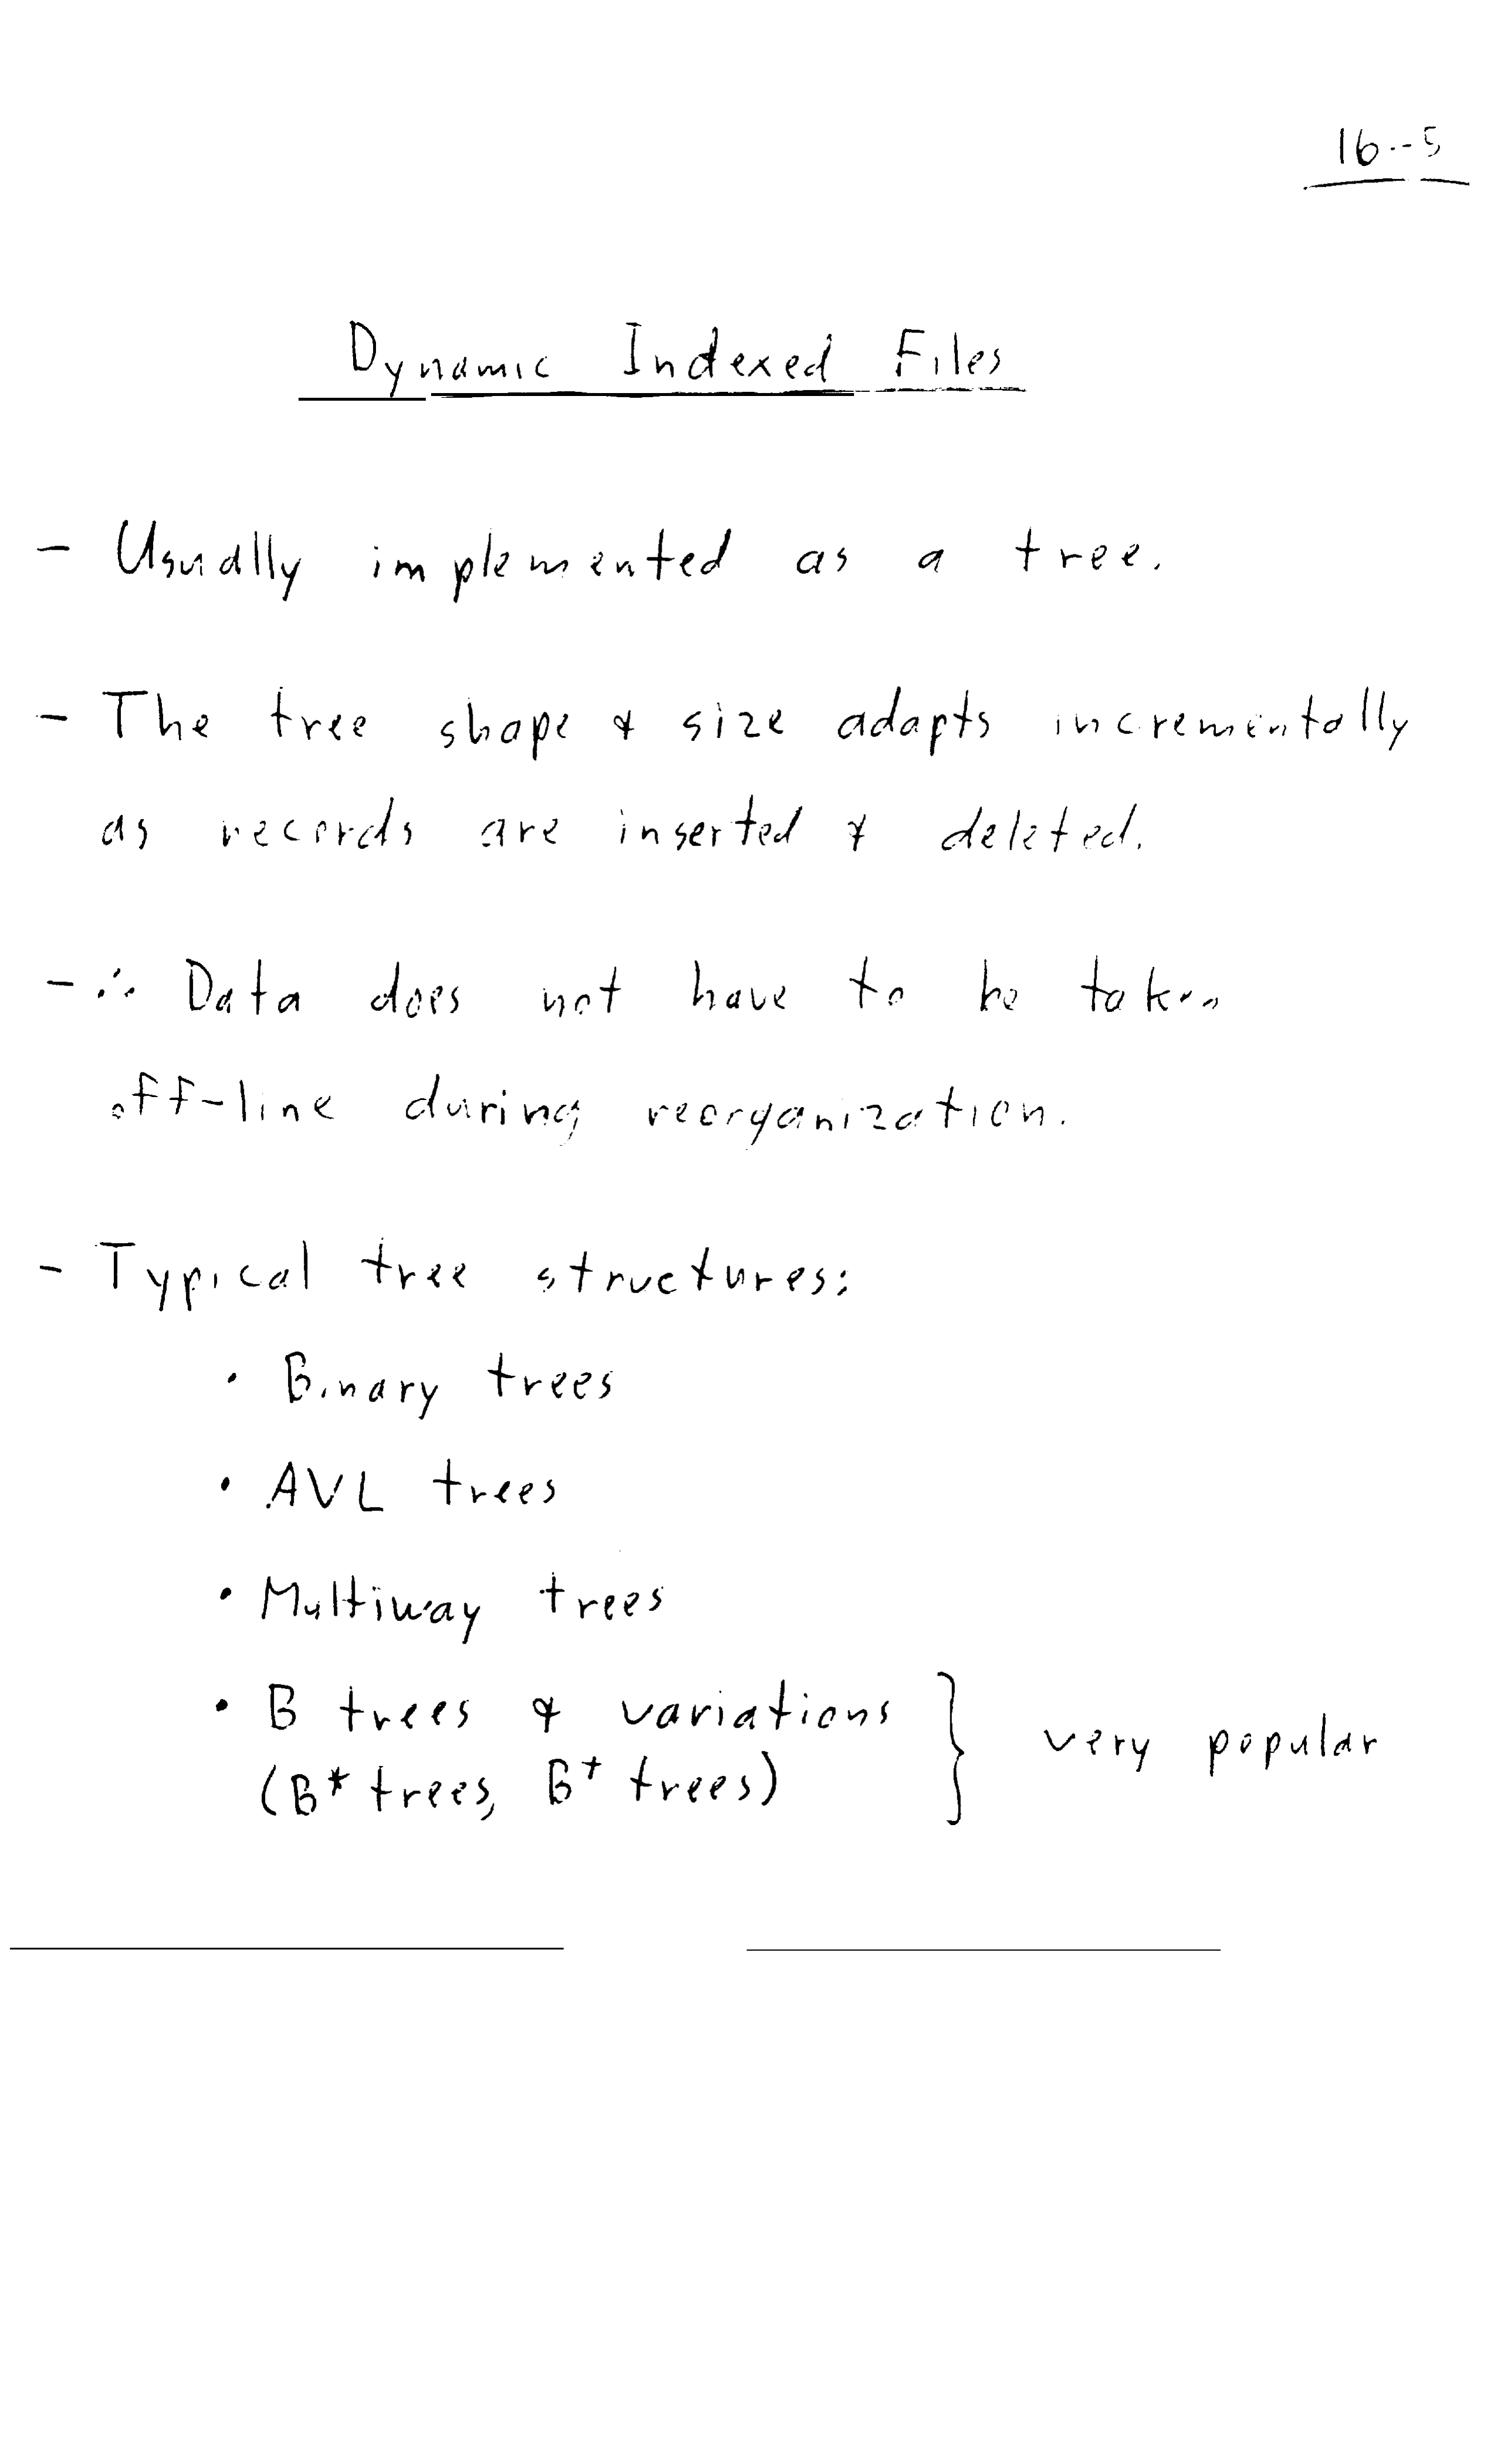 16--5
Dynamic Indexed Files
- Usually implemented as a tree.
- The tree shape & size adapts incrementally
as records are inserted & deleted.
- ∴ Data does not have to be taken
off-line during reorganization.
- Typical tree structures:
• Binary trees
• AVL trees
• Multiway trees
• B trees & variations
(B* trees, B+ trees)
} very popular